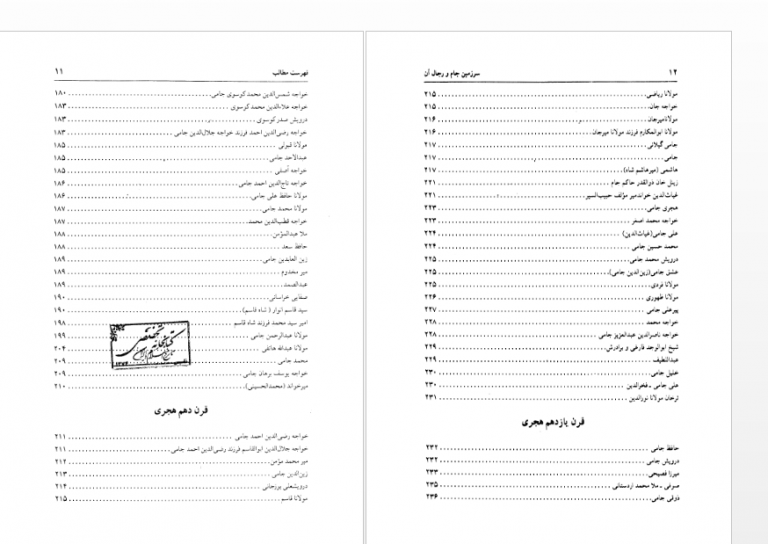 ۱۲
سرزمین جام و رجال آن
مولانا ریاضی ۲۱۵
خواجه جان ۲۱۵
مولانا میرجان ۲۱۶
مولانا ابوالمکارم فرزند مولانا میرجان ۲۱۶
جامی گیلانی ۲۱۷
جامی ۲۱۷
هاشمی (میرهاشم شاه) ۲۱۷
زینل خان ذوالقدر حاکم جام ۲۲۱
غیاث‌الدین خواندمیر مؤلف حبیب‌السیر ۲۲۱
هجری جامی ۲۲۳
خواجه محمد اصغر ۲۲۳
علی جامی (غیاث‌الدین) ۲۲۴
محمد حسین جامی ۲۲۴
درویش محمد جامی ۲۲۵
عشق جامی (زین‌الدین جامی) ۲۲۵
مولانا فردی ۲۲۵
مولانا ظهوری ۲۲۶
پیرعلی جامی ۲۲۷
خواجه محمد ۲۲۸
خواجه ناصرالدین عبدالعزیز جامی ۲۲۸
شیخ ابوالوجد فارغی و برادرش ۲۲۹
عبداللطیف ۲۲۹
خلیل جامی ۲۳۰
علی جامی - فخرالدین ۲۳۰
ترخان مولانا نورالدین ۲۳۱
قرن یازدهم هجری
حافظ جامی ۲۳۲
درویش جامی ۲۳۲
میرزا فصیحی ۲۳۳
صرفی - ملا محمد اردستانی ۲۳۵
ذوقی جامی ۲۳۶
فهرست مطالب
۱۱
خواجه شمس‌الدین محمد کوسوی جامی ۱۸۰
خواجه علاءالدین محمد کوسوی ۱۸۳
درویش صدر کوسوی ۱۸۳
خواجه رضی‌الدین احمد فرزند خواجه جلال‌الدین جامی ۱۸۳
مولانا قبولی ۱۸۵
عبدالاحد جامی ۱۸۵
خواجه آصفی ۱۸۵
خواجه تاج‌الدین احمد جامی ۱۸۶
مولانا حافظ علی جامی ۱۸۶
مولانا محمد جامی ۱۸۷
خواجه قطب‌الدین محمد ۱۸۷
ملا عبدالمؤمن ۱۸۸
حافظ سعد ۱۸۸
زین العابدین جامی ۱۸۹
میر مخدوم ۱۸۹
عبدالصمد ۱۸۹
صفایی خراسانی ۱۹۰
سید قاسم انوار (شاه قاسم) ۱۹۰
امیر سید محمد فرزند شاه قاسم ۱۹۸
مولانا عبدالرحمن جامی ۱۹۹
مولانا عبدالله هاتفی ۲۰۴
محمد جامی ۲۰۹
خواجه یوسف برهان جامی ۲۰۹
میرخواند (محمدالحسینی) ۲۱۰
قرن دهم هجری
خواجه رضی‌الدین احمد جامی ۲۱۱
خواجه جلال‌الدین ابوالقاسم فرزند رضی‌الدین احمد جامی ۲۱۱
میر محمد مؤمن ۲۱۲
زین‌الدین جامی ۲۱۳
درویشعلی بورجانی ۲۱۴
مولانا قاسم ۲۱۵